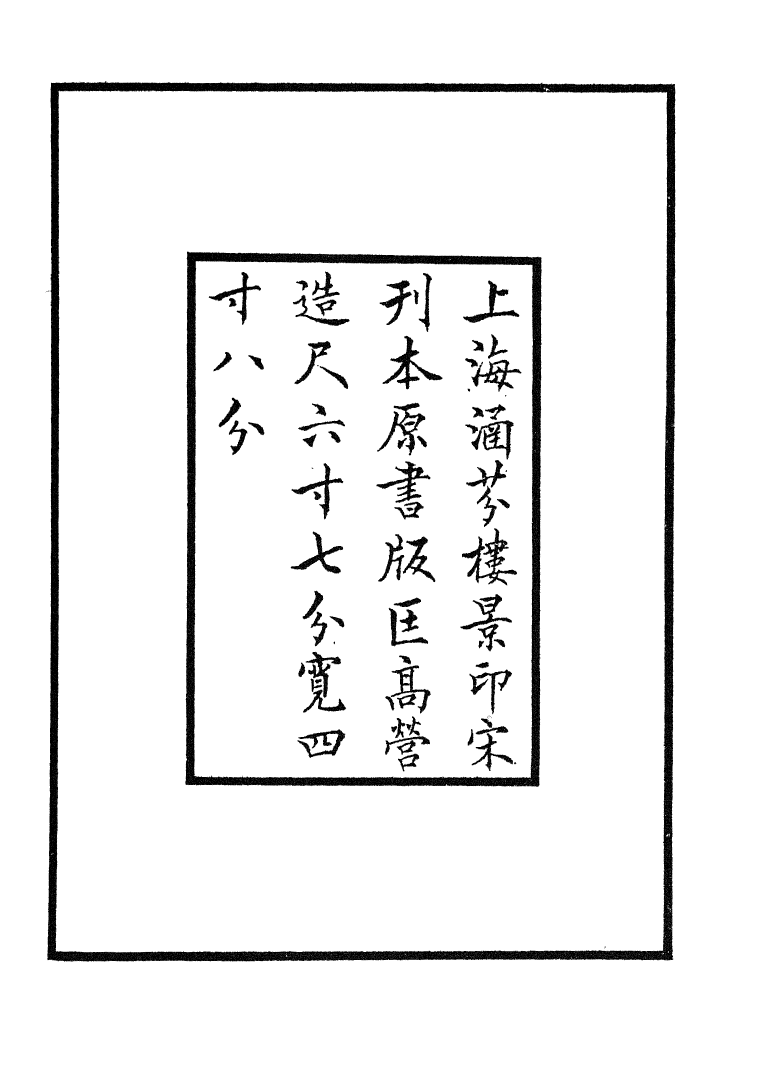 上海涵芬樓景印宋
刊本原書版匡高營
造尺六寸七分寬四
寸八分